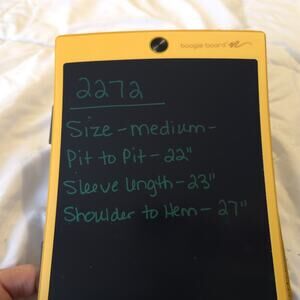 boogie board
2272
Size - medium -
Pit to Pit - 22"
Sleeve length - 23"
Shoulder to Hem - 27"